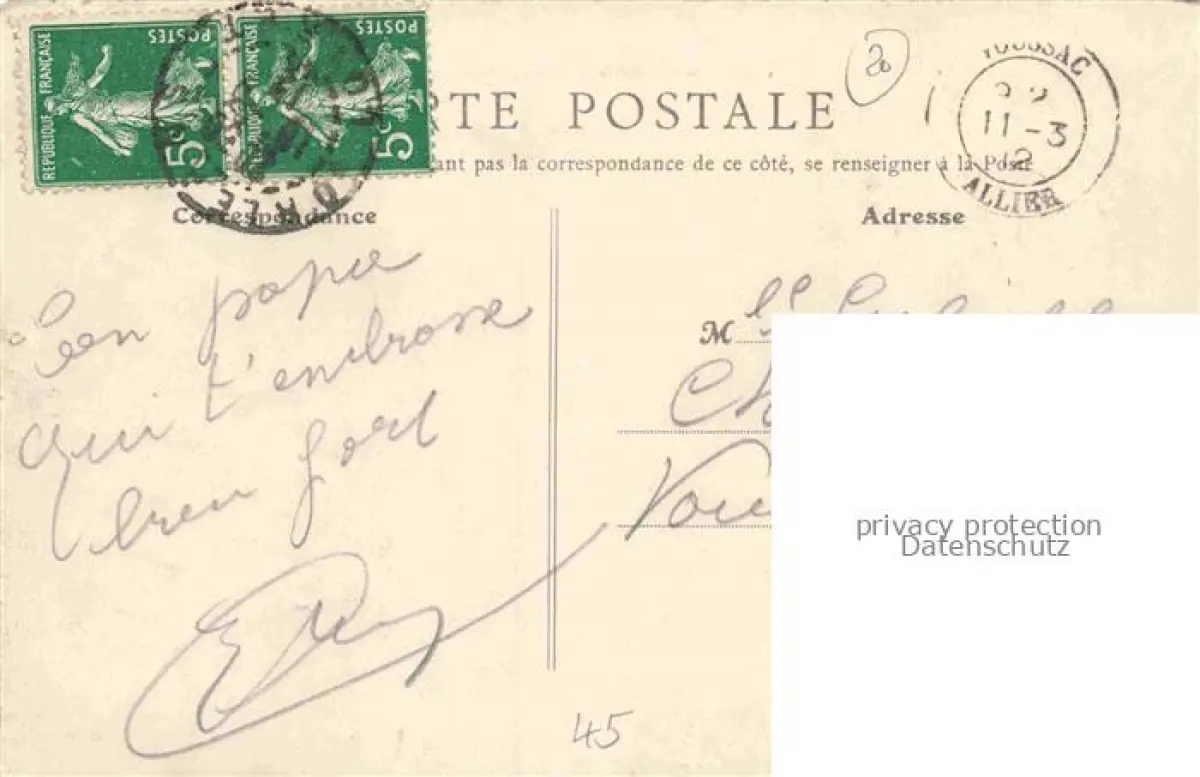 REPUBLIQUE FRANÇAISE
POSTES
5c
REPUBLIQUE FRANÇAISE
POSTES
5c
20
RTE POSTALE
ant pas la correspondance de ce côté, se renseigner à la Poste
11-3
12
ALLIER
Correspondance
Adresse
Ton papa
qui t'embrasse
bien fort
M
45
privacy protection
Datenschutz